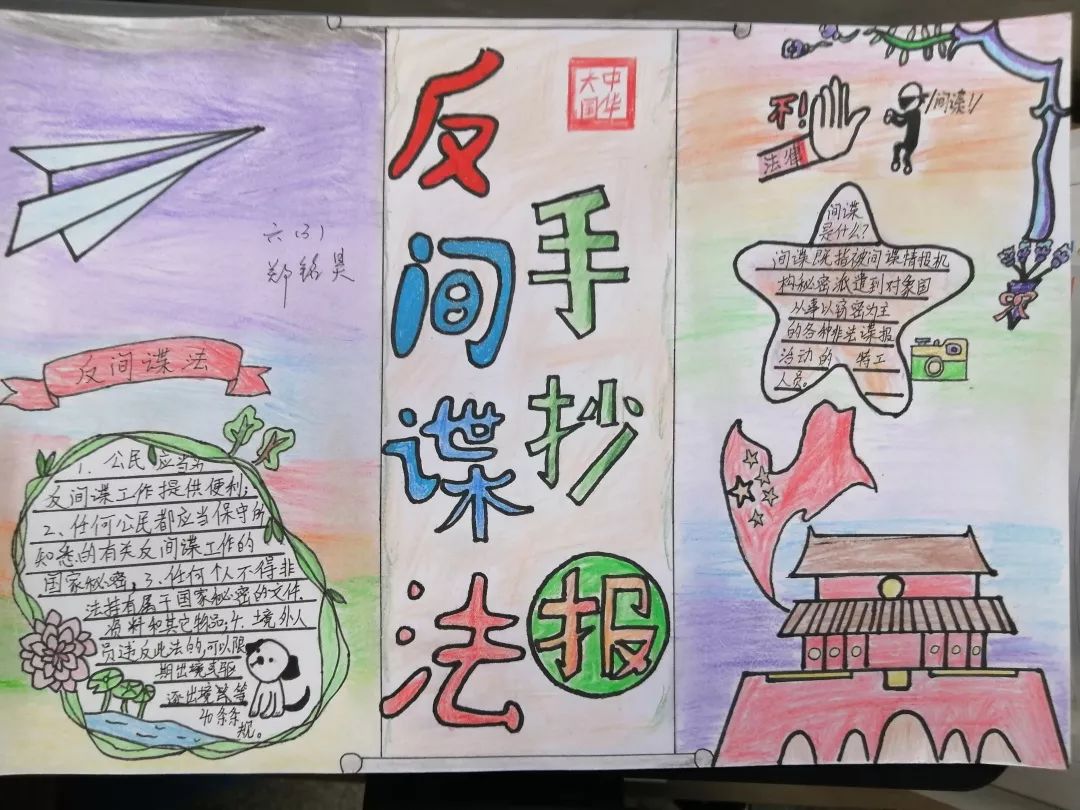 六(3)
郑铭昊
反间谍法
1、公民应当为
反间谍工作提供便利;
2、任何公民都应当保守所
知悉的有关反间谍工作的
国家秘密;3、任何个人不得非
法持有属于国家秘密的文件
资料和其它物品;4、境外人
员违反此法的,可以限
期出境或驱
逐出境等等
40条条
规。
反间谍法
手抄报
中华
大国
不!
法律
间谍!
间谍
是什么?
间谍既指被间谍情报机
构秘密派遣到对象国
从事以窃密为主
的各种非法谍报
活动的 特工
人员。